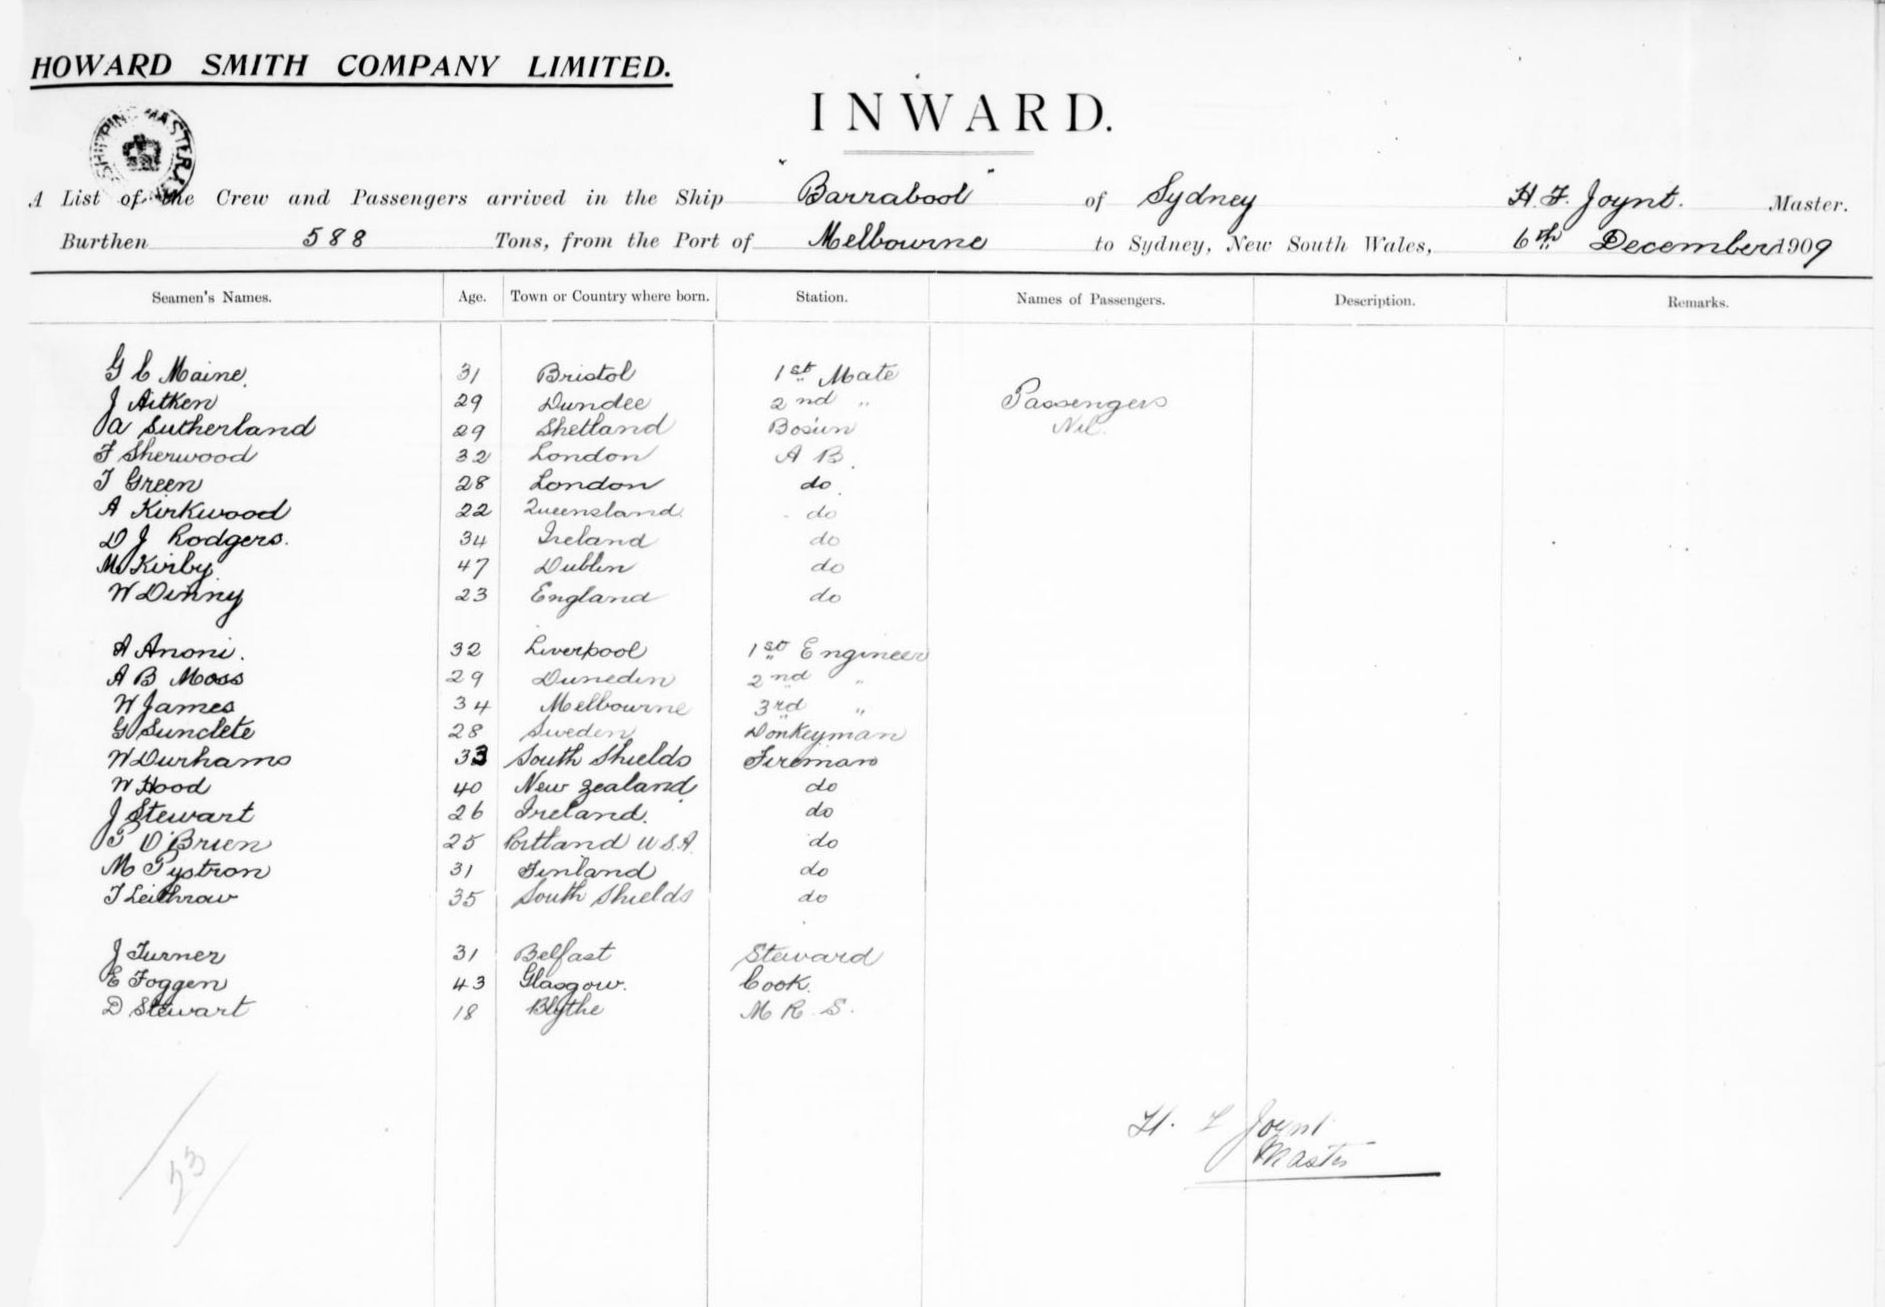 HOWARD SMITH COMPANY LIMITED.
INWARD.
SHIPPING MASTER
A List of the Crew and Passengers arrived in the Ship "Barrabool" of Sydney H. F. Joynt. Master.
Burthen 588 Tons, from the Port of Melbourne to Sydney, New South Wales, 6th December 1909
Seamen's Names. Age. Town or Country where born. Station. Names of Passengers. Description. Remarks.
G C Maine. 31 Bristol 1st Mate
J Aitken 29 Dundee 2nd " Passengers
A Sutherland 29 Shetland Bosun Nil.
F Sherwood 32 London A B.
T Green 28 London do.
A Kirkwood 22 Queensland. do
D J Rodgers. 34 Ireland do
M Kirby. 47 Dublin do
W Dinny 23 England do
A Anoni. 32 Liverpool 1st Engineer
A B Moss 29 Dunedin 2nd "
W James 34 Melbourne 3rd "
G Sunclete 28 Sweden Donkeyman
W Durhams 33 South Shields Fireman
W Hood 40 New Zealand do
J Stewart 26 Ireland. do
P O'Brien 25 Portland U S.A. do
M Pystron 31 Finland do
T Leithrow 35 South Shields do
J Turner 31 Belfast Steward
E Foggen 43 Glasgow. Cook.
D Stewart 18 Blythe M R. S.
H. F Joynt
Master
23